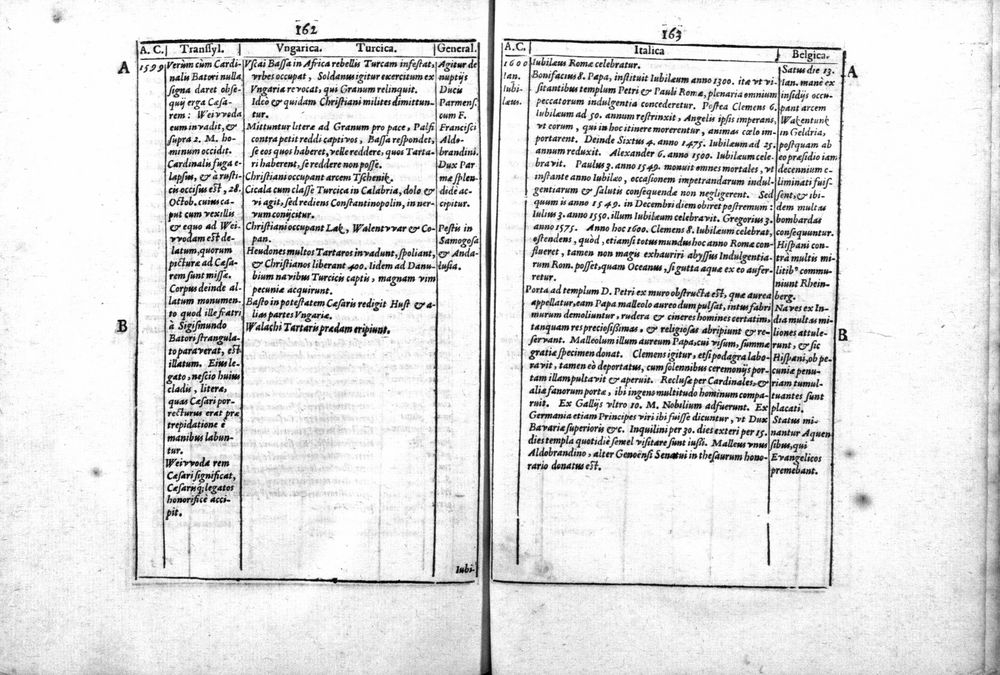 162
A. C.
Transsyl.
Vngarica. Turcica.
General.
A
B
1599
Verùm cum Cardi-
nalis Batori nulla
signa daret obse-
quij erga Cæsa-
rem: Weivvoda
eum invadit, &
supra 2. M. ho-
minum occidit.
Cardinalis fuga e-
lapsus, & à rusti-
cis occisus est, 28.
Octob. cuius ca-
put cum vexillis
& equo ad Wei-
vvodam est de-
latum, quorum
picturæ ad Cæsa-
rem sunt missæ.
Corpus deinde al-
latum monumen-
to quod ille fratri
à Sigismundo
Batori strangula-
to paraverat, est
illatum. Eius le-
gato, nescio huius
cladis, literæ,
quas Cæsari por-
recturus erat præ
trepidatione è
manibus labun-
tur.
Weivvoda rem
Cæsari significat,
Cæsarisq; legatos
honorificè acci-
pit.
Vscai Bassa in Africa rebellis Turcam infestat,
vrbes occupat, Soldanus igitur exercitum ex
Vngaria revocat, qui Granum relinquit.
Ideo & quidam Christiani milites dimittun-
tur.
Mittuntur literæ ad Granum pro pace, Palfi
contra petit reddi captivos, Bassa respondet,
se eos quos haberet, velle reddere, quos Tarta-
ri haberent, se reddere non posse.
Christiani occupant arcem Tschenik.
Cicala cum classe Turcica in Calabria, dolo &
vi agit, sed rediens Constantinopolin, in ner-
vum conijcitur.
Christiani occupant Lak, Walentvvar & Co-
pan.
Heudones multos Tartaros invadunt, spoliant,
& Christianos liberant 400. Iidem ad Danu-
bium navibus Turcicis captis, magnam vim
pecuniæ acquirunt.
Basto in potestatem Cæsaris redigit Hust & a-
lias partes Vngariæ.
Walachi Tartaris prædam eripiunt.
Agitur de
nuptijs
Ducis
Parmens.
cum F.
Francisci
Aldo-
brandini.
Dux Par
mæ splen-
didè ac-
cipitur.
Pestis in
Samogosa
& Anda-
lusia.
Iubi-
163
A. C.
Italica
Belgica.
A
B
1600
Ian.
Iubi-
læus.
Iubilæus Romæ celebratur.
Bonifacius 8. Papa, instituit Iubilæum anno 1300. ita vt vi-
sitantibus templum Petri & Pauli Romæ, plenaria omnium
peccatorum indulgentia concederetur. Postea Clemens 6.
Iubilæum ad 50. annum restrinxit, Angelis ipsis imperans,
vt eorum, qui in hoc itinere morerentur, animas cælo im-
portarent. Deinde Sixtus 4. anno 1475. Iubilæum ad 25.
annum reduxit. Alexander 6. anno 1500. Iubilæum cele-
bravit. Paulus 3. anno 1549. monuit omnes mortales, vt
instante anno Iubilæo, occasionem impetrandarum indul-
gentiarum & salutis consequendæ non negligerent. Sed
quum is anno 1549. in Decembri diem obiret postremum:
Iulius 3. anno 1550. illum Iubilæum celebravit. Gregorius 3.
anno 1575. Anno hoc 1600. Clemens 8. Iubilæum celebrat,
ostendens, quòd, etiamsi totus mundus hoc anno Romæ con-
flueret, tamen non magis exhauriri abyssus Indulgentia-
rum Rom. posset, quam Oceanus, si gutta aquæ ex eo aufer-
retur.
Porta ad templum D. Petri ex muro obstructa est, quæ aurea
appellatur, eam Papa malleolo aureo dum pulsat, intus fabri
murum demoliuntur, rudera & cineres homines certatim,
tanquam res preciosissimas, & religiosas abripiunt & re-
servant. Malleolum illum aureum Papa, cui visum, summæ
gratiæ specimen donat. Clemens igitur, etsi podagra labo-
ravit, tamen eò deportatus, cum solennibus ceremonijs por-
tam illam pultavit & aperuit. Reclusæ per Cardinales, &
alia fanorum porta, ibi ingens multitudo hominum compa-
ruit. Ex Gallijs vltro 10. M. Nobilium adfuerunt. Ex
Germania etiam Principes viri ibi fuisse dicuntur, vt Dux
Bavariæ superioris &c. Inquilini per 30. dies exteri per 15.
dies templa quotidiè semel visitare sunt iussi. Malleus vnus
Aldobrandino, alter Genoënsi Senatui in thesaurum hono-
rario donatus est.
Satus die 13.
Ian. manè ex
insidijs occu-
pant arcem
Wakentunk
in Geldria,
postquam ab
eo præsidio iam
decennium e-
liminati fuis-
sent, & ibi-
dem multas
bombardas
consequuntur.
Hispani con-
tra multis mi-
litib° commu-
niunt Rhein-
berg.
Naves ex In-
dia multas mi-
liones attule-
runt, & sic
Hispani, ob pe-
cuniæ penu-
riam tumul-
tuantes sunt
placati.
Status mi-
nantur Aquen
sibus, qui
Evangelicos
premebant.